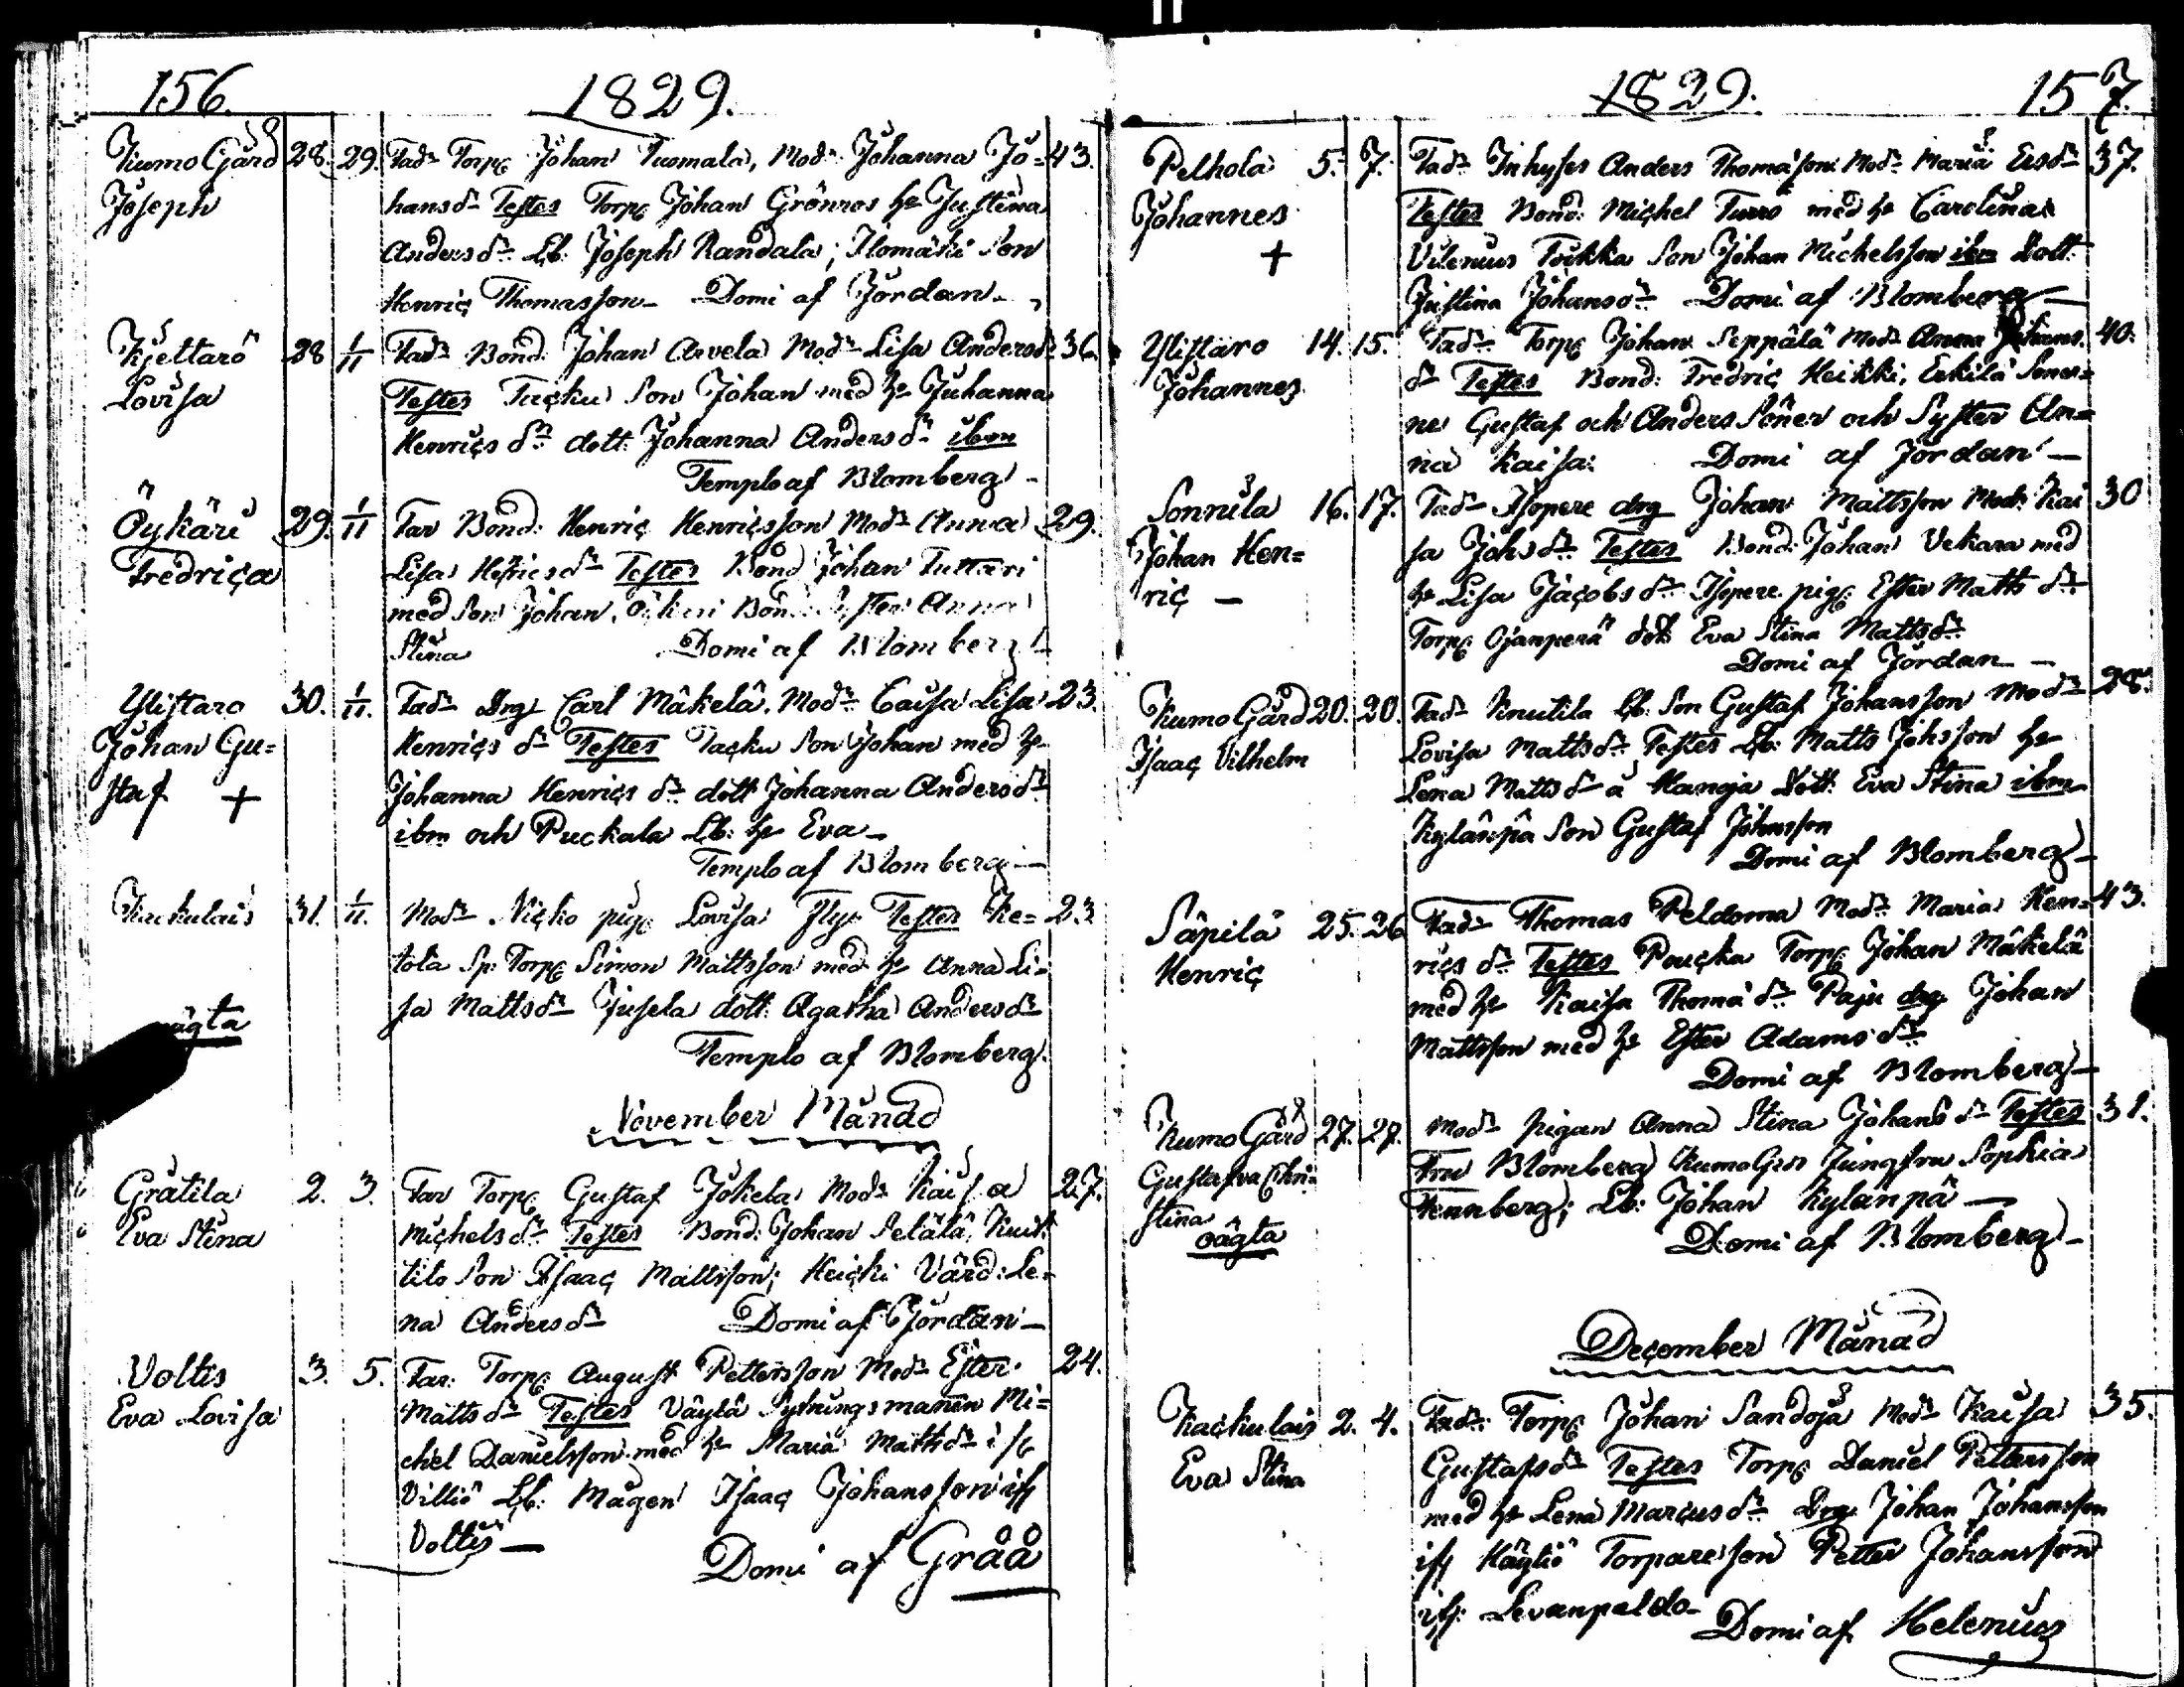 156.
1829.
Kumo Gård 28. 29. Fadr Torp Johan Tuomala, Modr Johanna Jo= 43.
Joseph
hansdr Testes Torp Johan Grönros h Justina
Andersdr Lb: Joseph Randala; Ilomäki Son
Henric Thomasson Domi af Jordan
Kjettarö 28 1/11 Fadr Bond: Johan Arvela Modr Lisa Andersdr 36.
Lovisa
Testes Tacku Son Johan med h Juhanna
Henricsdr dott: Johanna Andersdr ibm
Templo af Blomberg
Öykäri 29. 1/11 Far Bond: Henric Henricsson Modr Anna 29.
Fredrica
Lisa Henricsdr Testes Bond Johan Tuttari
med Son Johan, Bond: Syster Anna
Stina Domi af Blomberg
Ylistaro 30. 1/11. Fadr Drg Carl Mäkelä. Modr Caisa Lisa 23.
Johan Gu=
Henricsdr Testes Tacku Son Johan med h
staf +
Johanna Henricsdr dott Johanna Andersdr
ibm och Puckala Lb: h Eva
Templo af Blomberg
Kackulais 31. 1/11. Modr Nicko pig Lovisa Testes Ke= 23
tola Sp: Torp Simon Mattsson med h Anna Li=
sa Mattsdr Jusela dott: Agatha Andersdr
Templo af Blomberg.
November Månad
Gratila 2. 3. Far Torp Gustaf Jokela Modr Kaisa 27.
Eva Stina
Michelsdr Testes Bond: Johan
tilo Son Isaac Mattsson; Heicki Värd: Le=
na Andersdr Domi af Jordan
Voltis 3. 5. Far: Torp August Pettersson Modr Ester 24.
Eva Lovisa
Mattsdr Testes Väylä Sytningsmannen Mi=
chel Danielsson med h Maria Mattsdr
Villiö Lb: Magen Isaac Johansson
Voltis
Domi af Gråå
1829.
157.
Pelhola 5. 7. Fadr Inhyses Anders Thomasson Modr Maria Ersdr 37.
Johannes
Testes Bond: Michel Turro med h Carolina
+
Vilenius Toikka Son Johan Michelsson ibm Dott
Justina Johansdr Domi af Blomberg
Ylistaro 14. 15. Fadr Torp Johan Seppälä Modr Anna Johans 40.
Johannes
dr Testes Bond: Fredric Heikki, Erkilä Soner=
ne Gustaf och Anders Söner och Syster An=
na Kaisa: Domi af Jordan
Sonnila 16. 17. Fadr Isopere drg Johan Mattsson Modr Kai 30
Johan Hen=
sa Johsdr Testes Bond: Johan Vekara med
ric
h Lisa Jacobsdr Isopere pig Ester Mattsdr
Torp Ojanperä dott Eva Stina Mattsdr
Domi af Jordan
Kumo Gård 20. 20. Fadr Knutila Lb: Son Gustaf Johansson Modr 28.
Isaac Vilhelm
Lovisa Mattsdr Testes Lb: Matts Johsson h
Lena Mattsdr a Hanoja Dott: Eva Stina ibm
Kylänpä Son Gustaf Johansson
Domi af Blomberg
Säpilä 25. 26 Fadr Thomas Peldoma Modr Maria Hen= 43.
Henric
ricsdr Testes Poucka Torp Johan Mäkelä
med h Kaisa Thomädr Paju drg Johan
Mattsson med h Ester Adamsdr
Domi af Blomberg
Kumo Gård 27. 27. Modr pigan Anna Stina Johansdr Testes 31.
Gustafva Chri=
Fru Blomberg Kumo Grd Jungfru Sophia
stina
Lb: Johan Kylänpä
oägta
Domi af Blomberg
December Månad
Kackulais 2. 4. Fadr: Torp Johan Sandoja Modr Kaisa 35.
Eva Stina
Gustafsdr Testes Torp Daniel Pettersson
med h Lena Marcusdr Drg Johan Johansson
Käyliö Torpare son Petter Johansson
Levanpeldo
Domi af Helenius